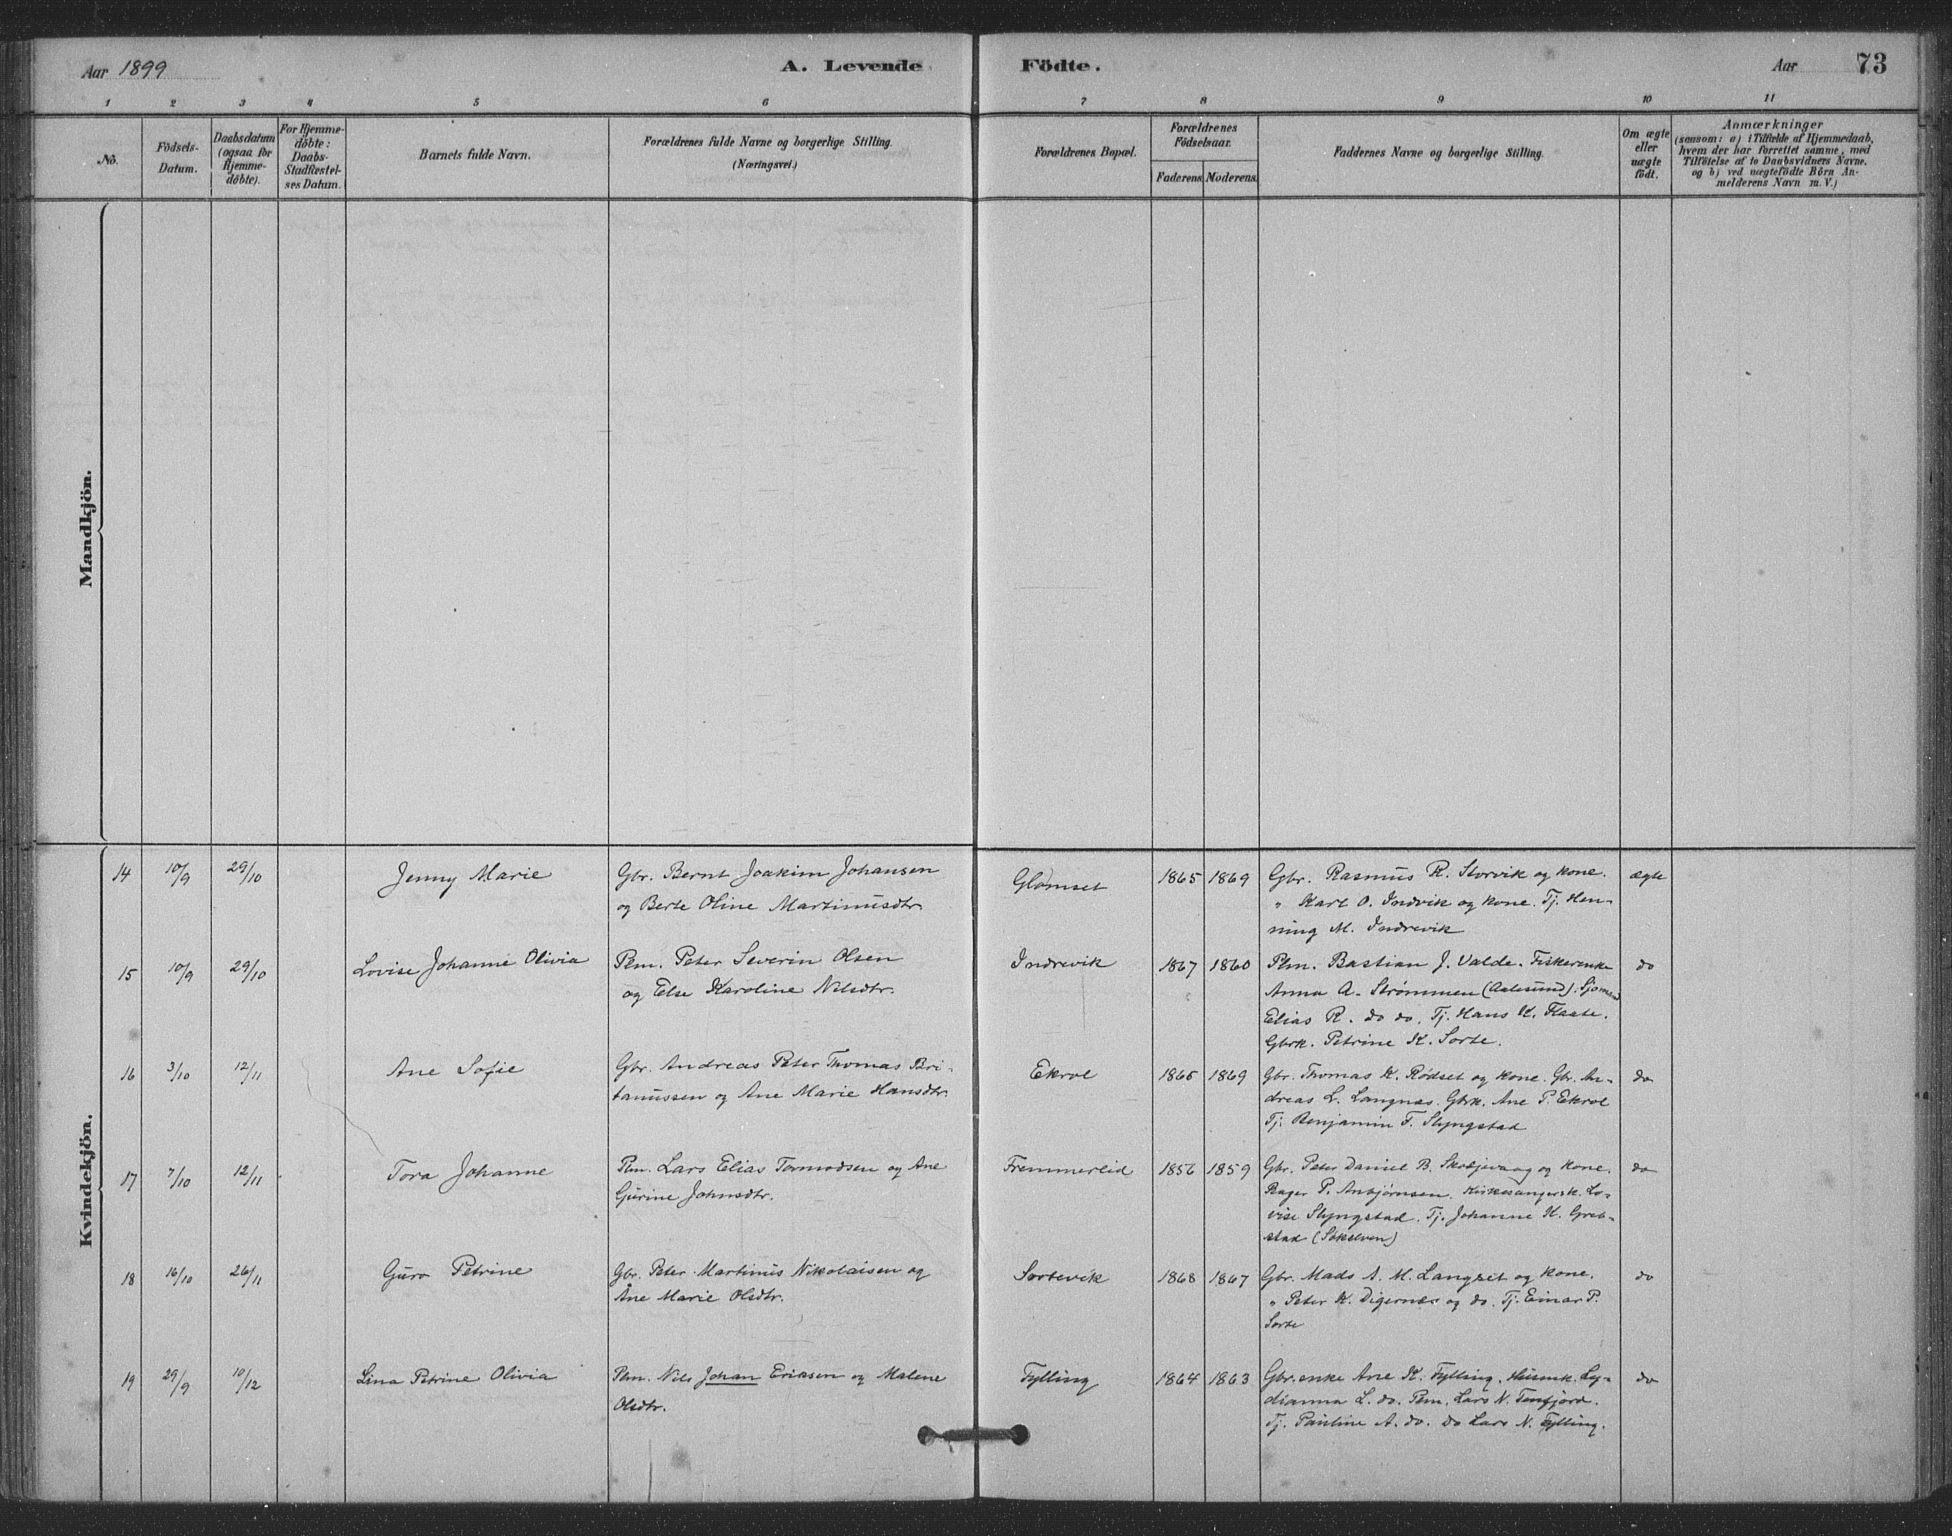 Aar 1899
A. Levende Födte.
Aar 73
1 2 3 4 5 6 7 8 9 10 11
No.
Födsels-
Datum.
Daabsdatum
(ogsaa for
Hjemme-
döbte).
For Hjemme-
döbte:
Daabs-
Stadfæstel-
ses Datum.
Barnets fulde Navn.
Forældrenes fulde Navne og borgerlige Stilling.
(Næringsvei.)
Forældrenes Bopæl.
Forældrenes
Födselsaar.
Faderens. Moderens.
Faddernes Navne og borgerlige Stilling.
Om ægte
eller
uægte
födt.
Anmærkninger
(saasom: a) i Tilfælde af Hjemmedaab,
hvem der har forrettet samme, med
Tilföielse af to Daabsvidners Navne.
og b) ved uægtefödte Börn An-
melderens Navn m. V.)
Mandkjön.
Kvindekjön.
14 10/9 29/10 Jenny Marie Gbr. Bernt Joakim Johansen Glomset 1865 1869 Gbr. Rasmus R. Storvik og kone. ægte
og Berte Oline Martinusdtr. " Karl O. Indvik og kone. Tj. Hen-
ning M. Indrevik
15 10/9 29/10 Lovise Johanne Olivia Pm. Peter Severin Olsen Indrevik 1867 1860 Pm. Bastian J. Valde. Fiskerenke do
og Else Karoline Nilsdtr. Anna A. Strømmen (Aalesund). Sjømand
Elias R. do do. Tj. Hans K. Flaate.
Gbrk. Petrine K. Sorte.
16 3/10 12/11 Ane Sofie Gbr. Andreas Peter Thomas Bri- Ekrol 1865 1869 Gbr. Thomas K. Rødset og kone. Gbr. An- do
tanussen og Ane Marie Hansdtr. dreas L. Langnæs. Gbrk. Ane P. Ekrol
Tj. Benjamin F. Slyngstad
17 7/10 12/11 Tora Johanne Pm. Lars Elias Tormodsen og Ane Fremmerlid 1856 1859 Gbr. Peter Daniel B. Skodjevaag og kone. do
Gurine Johnsdtr. Bager P. Ansjørnsen. Kirkesangersk. Lo-
vise Slyngstad. Tj. Johanne K. Greb-
stad (Søkelven)
18 16/10 26/11 Guro Petrine Gbr. Peter Martinus Nikolaisen og Sortevik 1868 1867 Gbr. Mads A. M. Langset og kone. do
Ane Marie Olsdtr. " Peter K. Digernes og do. Tj. Einar P.
Sorte
19 29/9 10/12 Lina Petrine Olivia Pm. Nils Johan Eriksen og Malene Fylling 1864 1863 Gbr.enke Ane K. Fylling. Husmk. Ly- do
Olsdtr. dianna L. do. Pm. Lars N. Tenfjord.
Tj. Pauline A. do. do Lars N. Fylling.